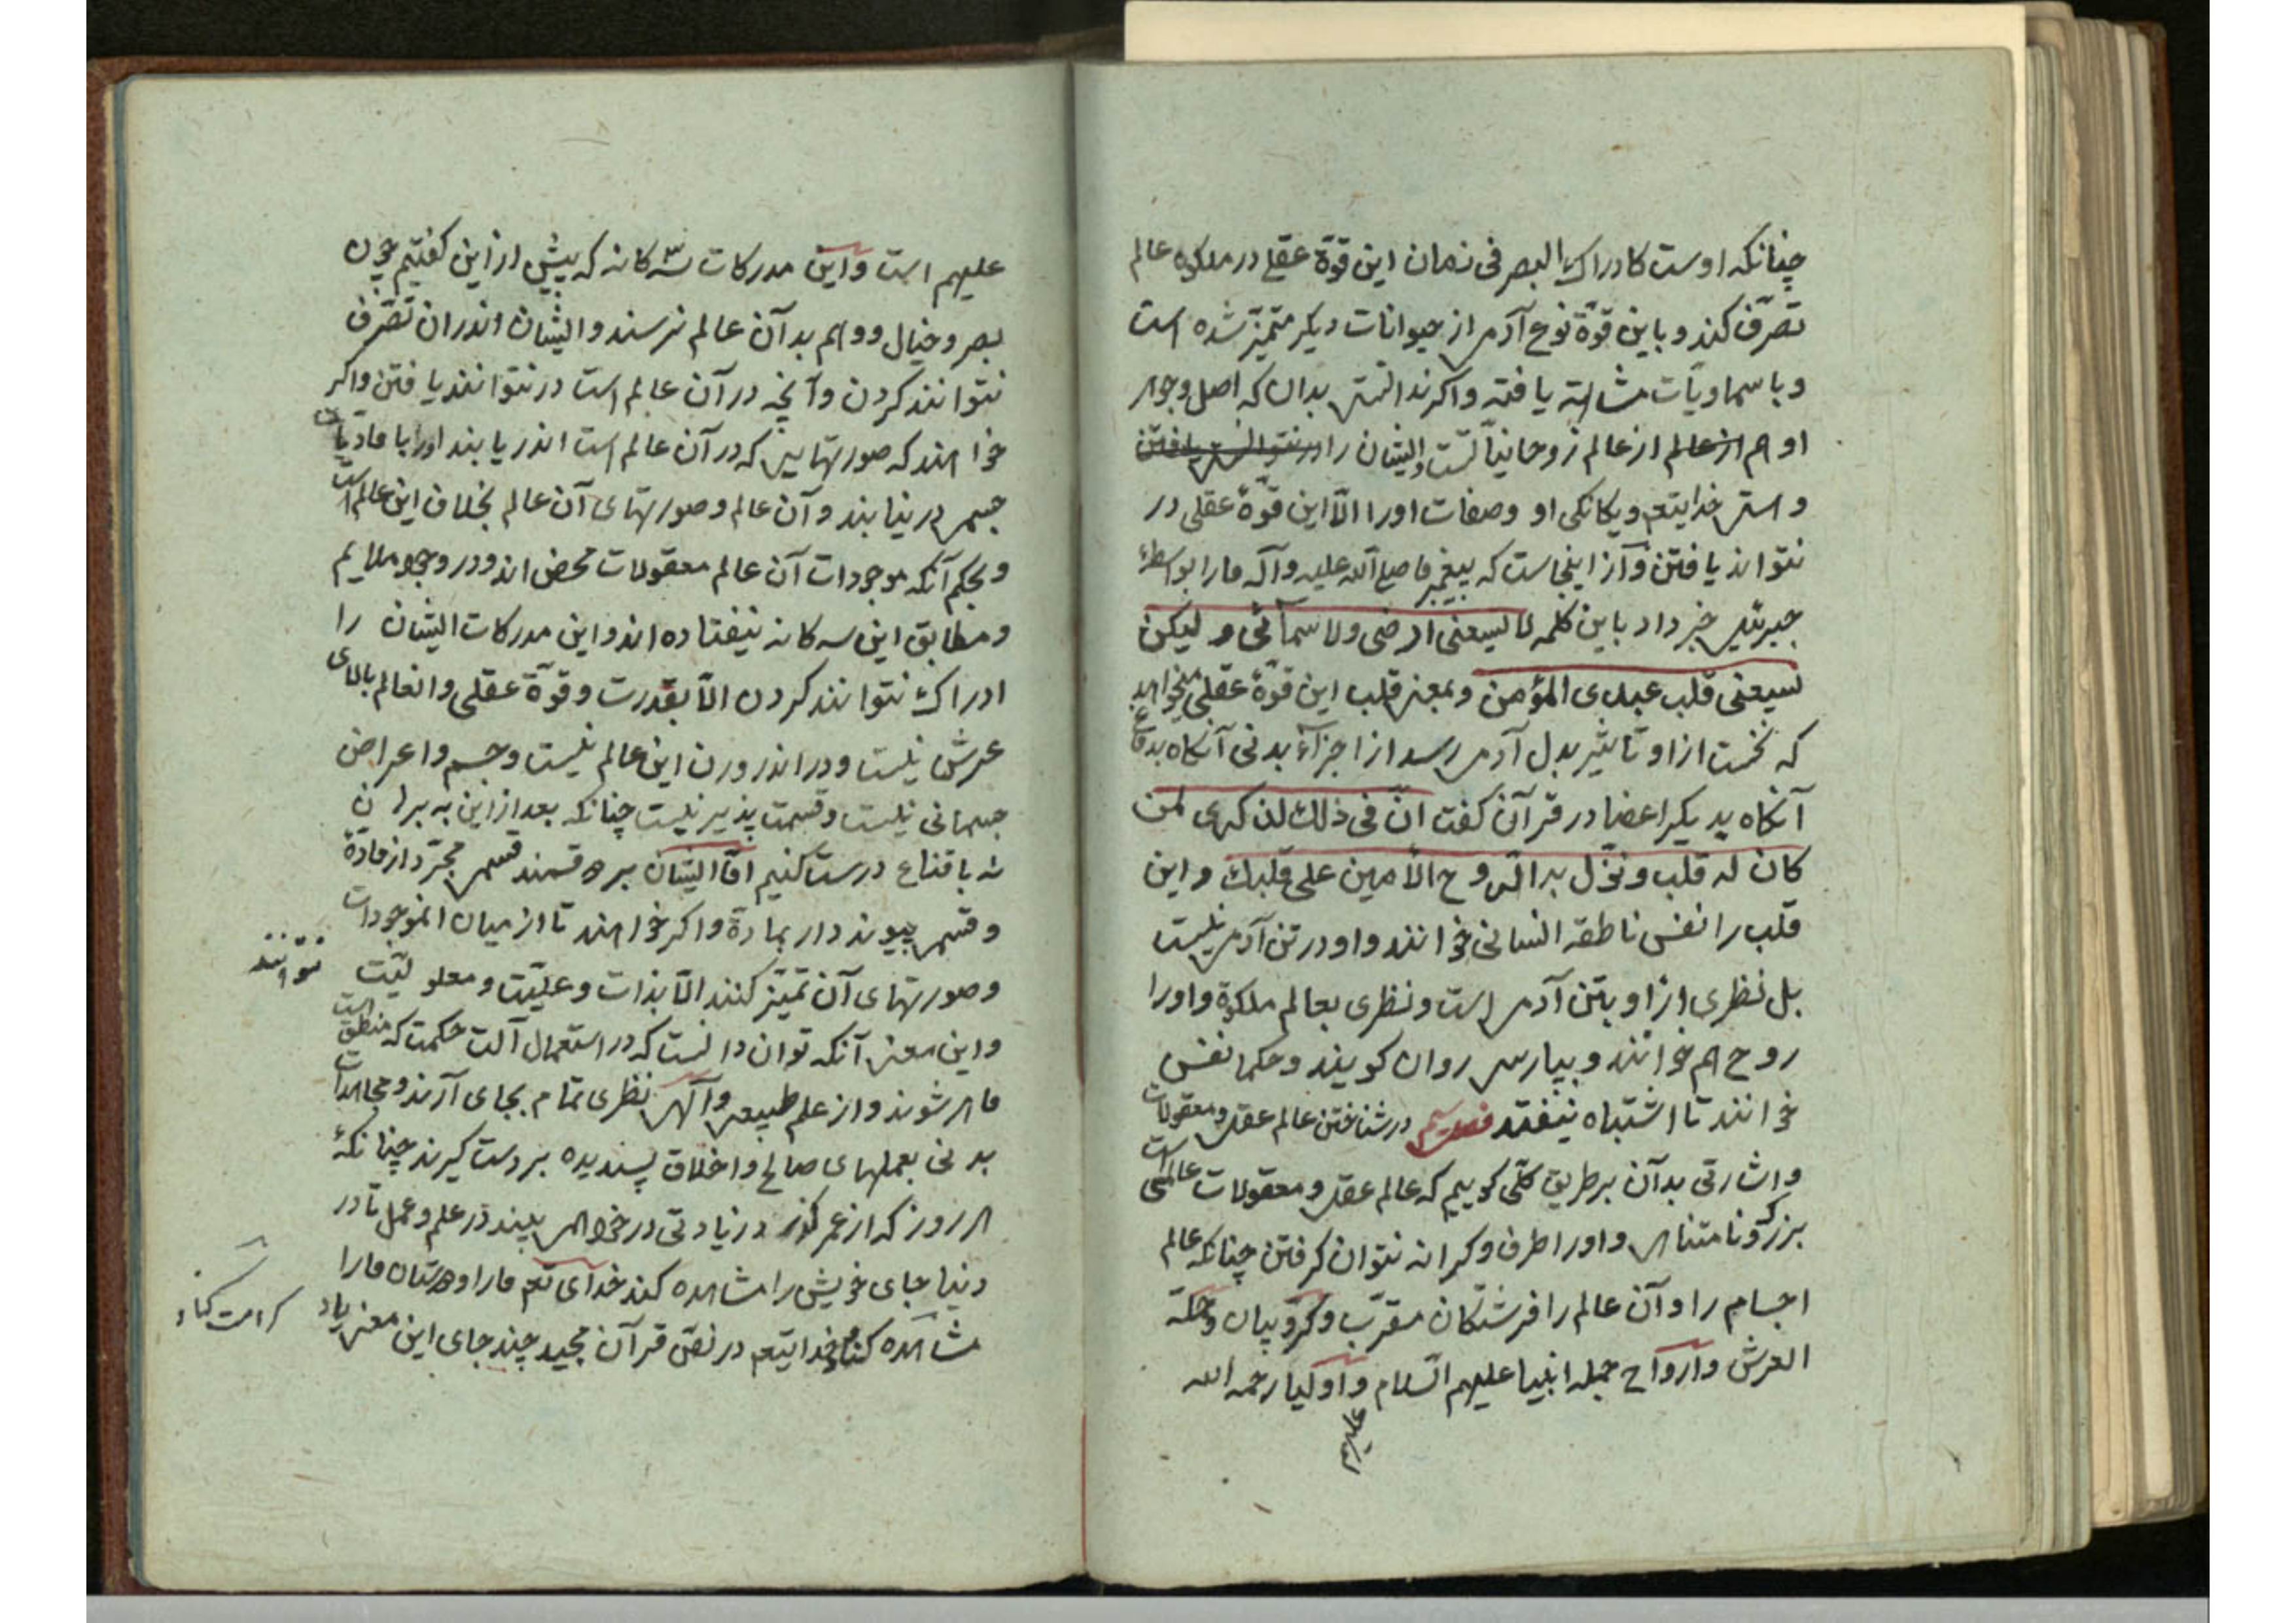 چنانکه اوست کادراک البصر فی زمان این قوّة عقلی در ملکوة عالم
تصرّف کند و باین قوّة نوع آدمی از حیوانات دیگر متمیّز شده است
و با سماویّات مشابهت یافته و اگر ندانستی بدان که اصل و جوهر
او هم از عالم از عالم روحانیاتست و ایشان را در نتوانستی یافتن
و هستی خدایتعم و یگانگی او و صفات او را الّا این قوّة عقلی در
نتواند یافتن و از اینجاست که پیغمبر ما صلی الله علیه و آله ما را بواسطهٔ
جبرئیل خبر داد باین کلمه لا یسعنی ارضی ولا سمائی و لیکن
یسعنی قلب عبدی المؤمن و بمعنی قلب این قوّة عقلی میخواهد
که نخست از او تاثیر بدل آدمی رسد از اجزآء بدنی آنکاه بدماغ
آنکاه بدیکر اعضا در قرآن کفت انّ فی ذلک لذکری لمن
کان له قلب و نزّل به الرّوح الأمین علی قلبک و این
قلب را نفس ناطقه انسانی خوانند و او در تن آدمی نیست
بل نظری از او بتن آدمی است و نظری بعالم ملکوة و او را
روح هم خوانند و بپارسی روان کویند و حکما نفس
خوانند تا اشتباه نیفتد فصل سیم در شناختن عالم عقلی و معقولات
و اشارتی بدآن بر طریق کلّی کوییم که عالم عقلی و معقولات عالمی است
بزرک و نامتناهی و او را طرف و کرانه نتوان کرفتن چنانکه عالم
اجسام را و آن عالم را فرشتکان مقرّب و کرّوبیان و حملة
العرش و ارواح جمله انبیا علیهم السّلام و اولیا رحمه الله
علیهم
علیهم است و این مدرکات سه کانه که پیش از این کفتیم چون
بصر و خیال و وهم بدآن عالم نرسند و ایشان اندر ان تصّرف
نتوانند کردن و آنچه در آن عالم است در نتوانند یافتن و اکر
خواهند که صورتهایی که در آن عالم است اندر یابند او را با مادیات
جسمی در نیابند و آن عالم و صورتهای آن عالم بخلاف این عالم است
و بحکم آنکه موجودات آن عالم معقولات محض اند و در وجود ملایم
و مطابق این سه کانه نیفتاده اند و این مدرکات ایشان را
ادراک نتوانند کردن الّا بقدرت و قوّة عقلی و انعالم بالای
عرش نیست و در اندرون این عالم نیست و جسم و اعراض
جسمانی نیست و قسمت پذیر نیست چنانکه بعد از این به برهان
نه باقناع درست کنیم امّا ایشان بر ۲ قسمند قسمی مجرّد از مادّة
و قسمی پیوند دار بمادّة و اکر خواهند تا از میان انموجودات
و صورتهای آن تمیّز کنند الّا بذات و علیّت و معلولیّت
نتوانند
و این معنی آنکه توان دانست که در استعمال آلت حکمت که منطق است
ماهر شوند و از علم طبیعی و آلهی نظری تمام بجای آرند و مجاهدات
بدنی بعملهای صالح و اخلاق پسندیده بر دست کیرند چنانکهٔ
هر روز که از عمر کذر د زیادتی در خود همی بیند در علم و عمل تا در
دنیا جای خویش را مشاهده کند خدآی تعم ما را و دوستان ما را
کرامت کناد
مشاهده کناد و خدایتعم در نصّ قرآن مجید چند جای این معنی یاد